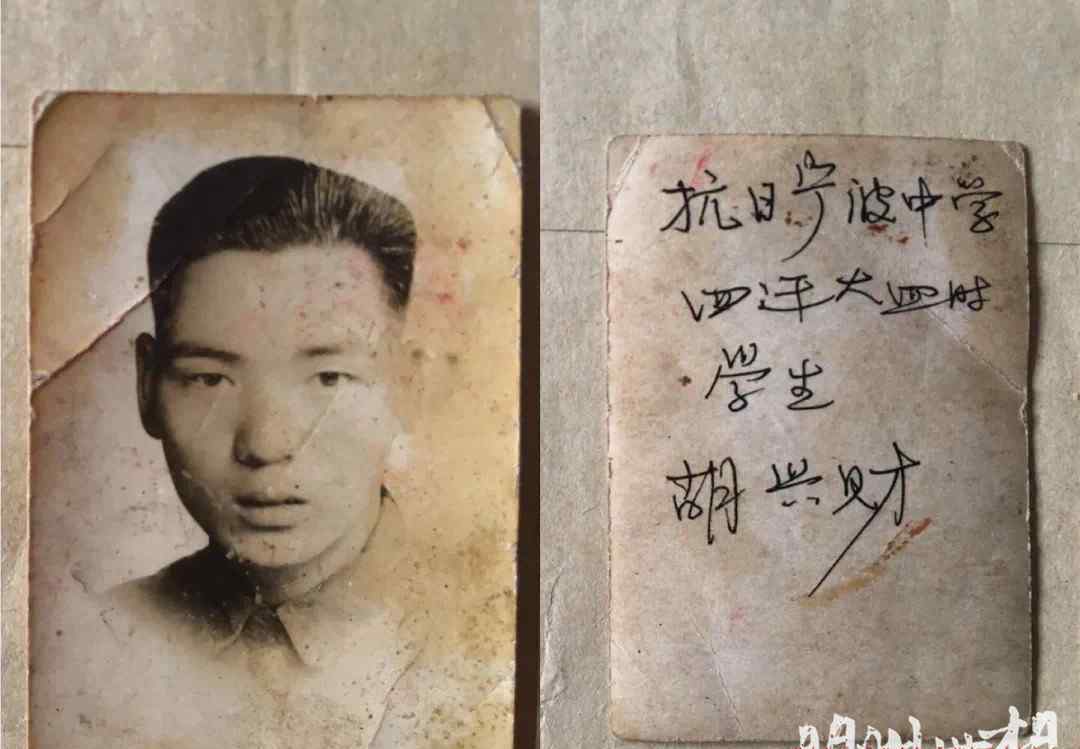 抗日宁波中学
四迁大四时
學生
胡兴财